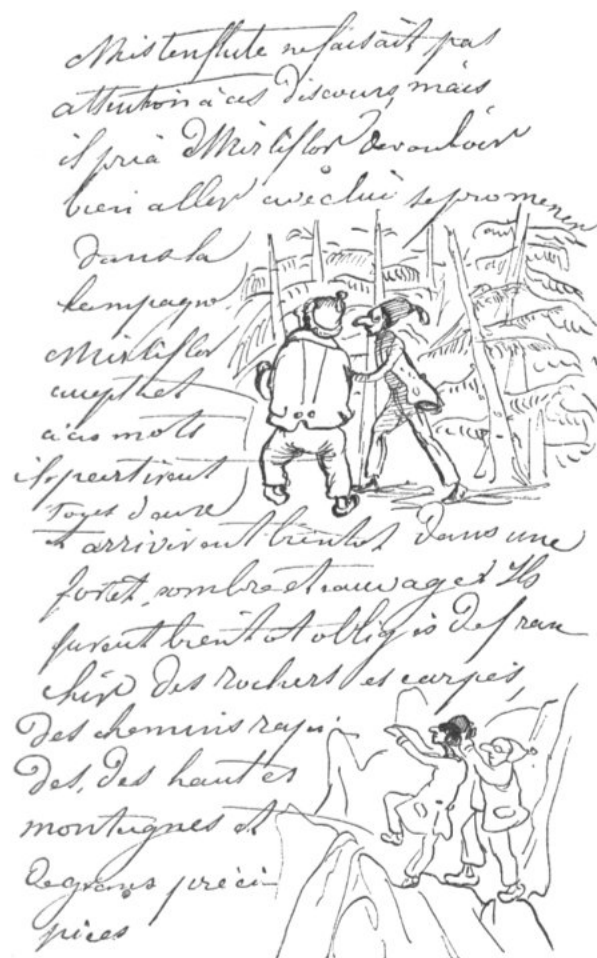 Mistenflute ne faisait pas
attention à ces discours, mais
il pria Mirliflor de vouloir
bien aller avec lui se promener
dans la
kampagne
Mirliflor
accepta et
à ces mots
ils partirent
tous deux
et arrivirent bientot dans une
foret sombre et sauvage et Ils
furent bientot obligés de fran
chir des rochers escarpés,
des chemins rapi-
des, des hautes
montagnes et
de grans préci-
pices